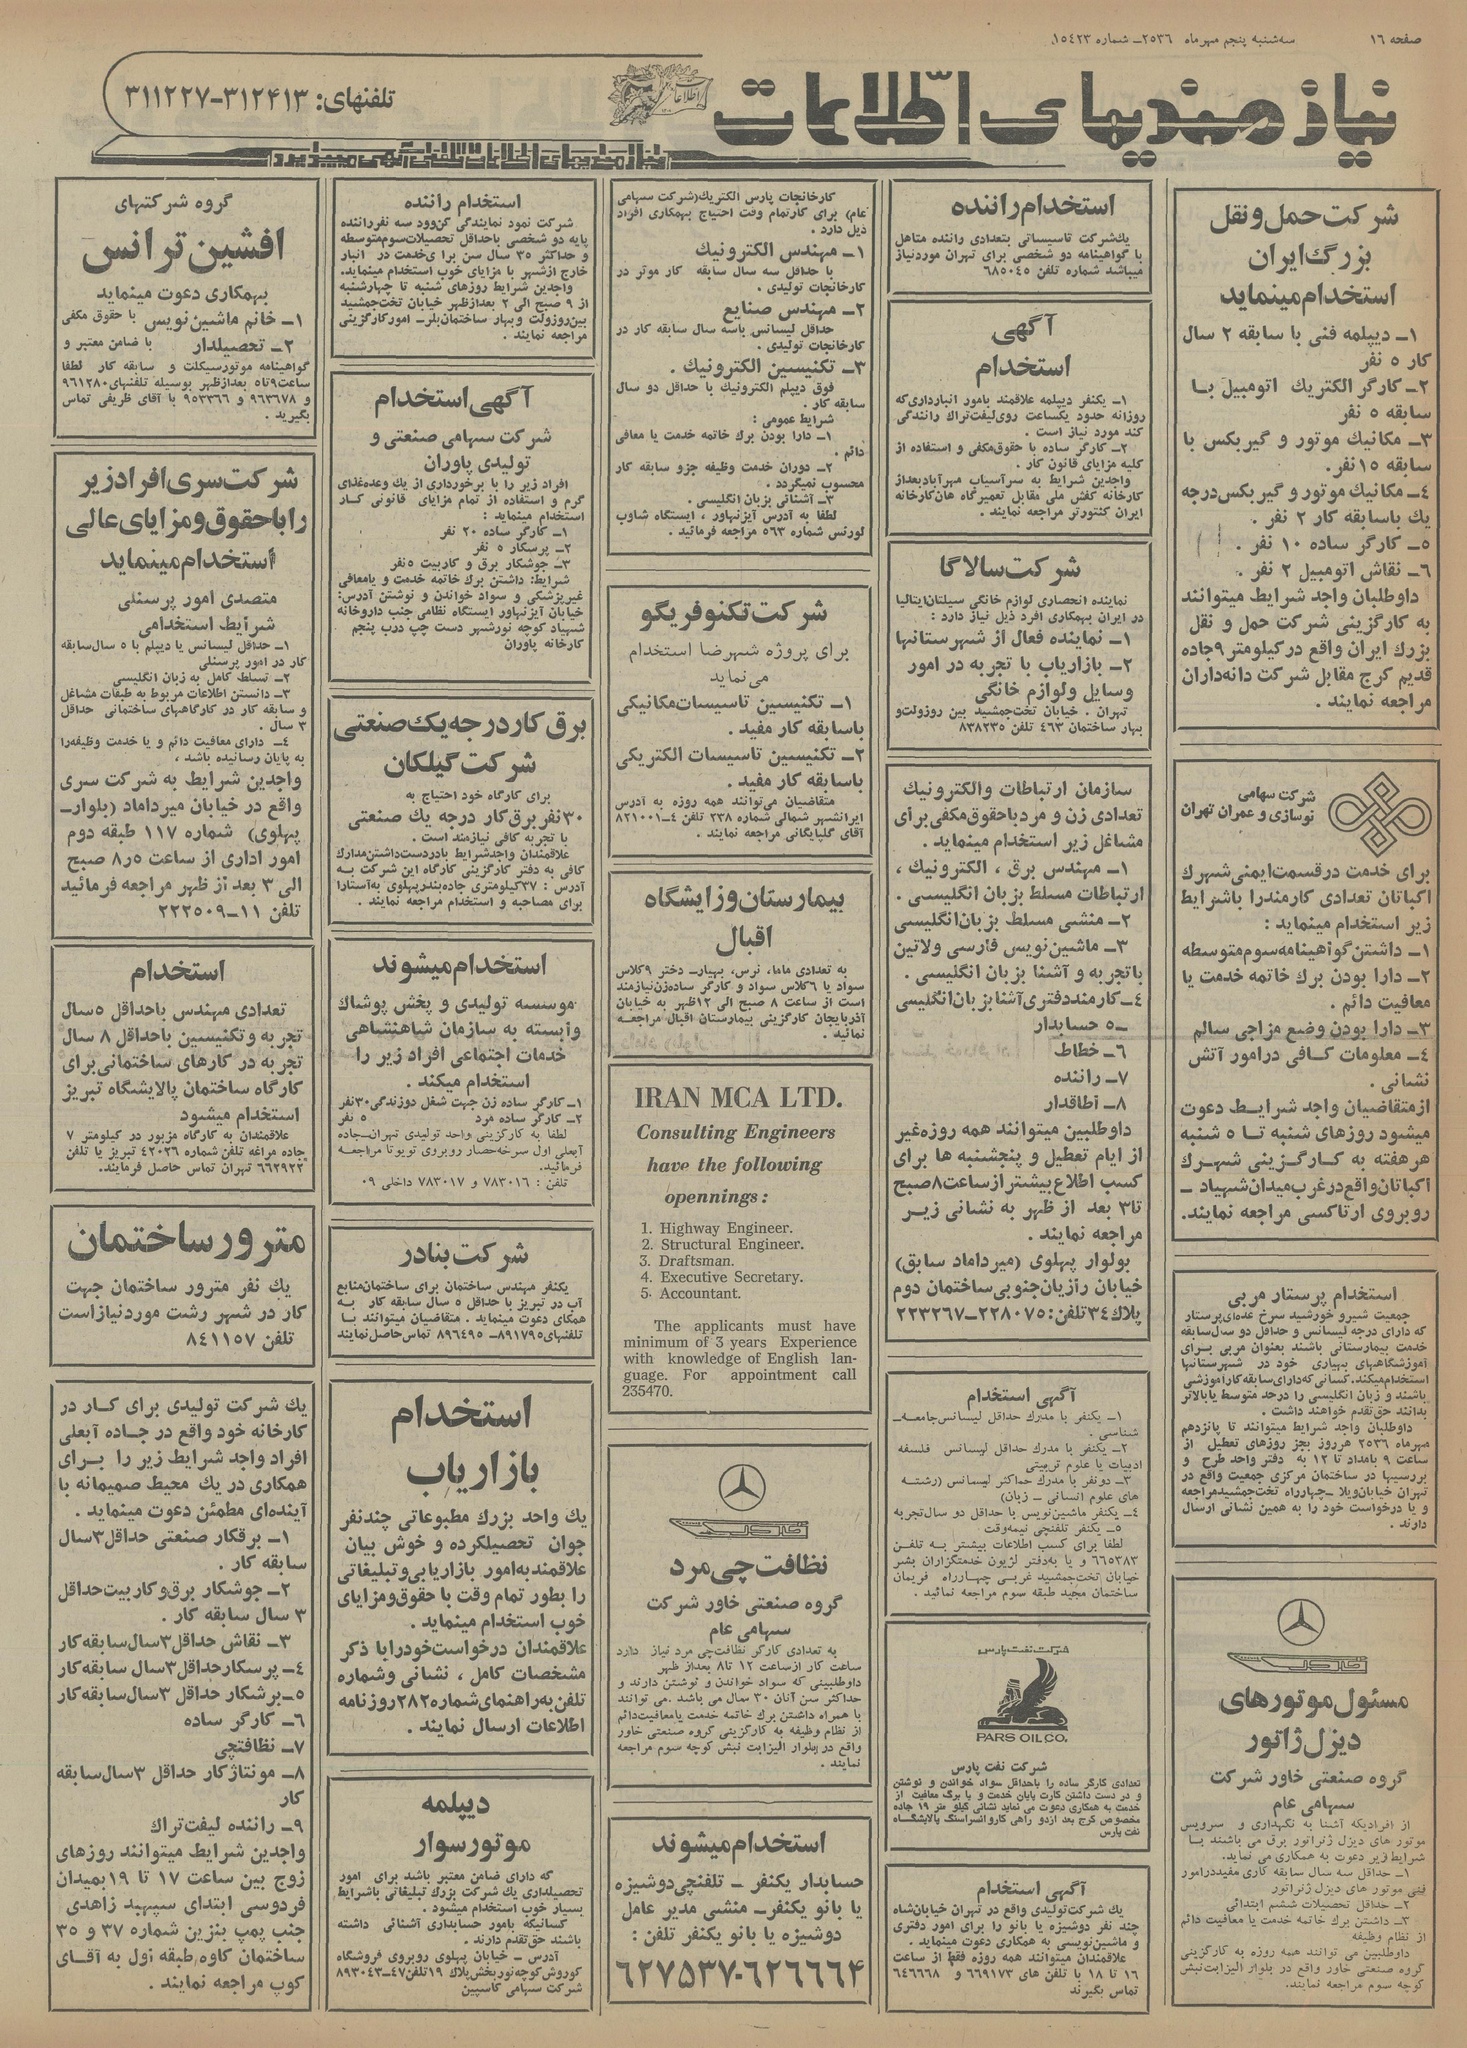 صفحه ۱۶
سه‌شنبه پنجم مهرماه ۲۵۳۶ـ شماره ۱۵۴۲۳
نیازمندیهای اطلاعات
تلفنهای: ۳۱۲۴۱۳-۳۱۱۲۲۷
نیازمندیهای اطلاعات تلفنی آگهی میپذیرد
شرکت حمل و نقل
بزرگ ایران
استخدام مینماید
۱ـ دیپلمه فنی با سابقه ۲ سال
کار ۵ نفر
۲ـ کارگر الکتریک اتومبیل با
سابقه ۵ نفر
۳ـ مکانیک موتور و گیربکس با
سابقه ۱۵ نفر.
۴ـ مکانیک موتور و گیربکس درجه
یک باسابقه کار ۲ نفر .
۵ـ کارگر ساده ۱۰ نفر .
۶ـ نقاش اتومبیل ۲ نفر .
داوطلبان واجد شرایط میتوانند
به کارگزینی شرکت حمل و نقل
بزرگ ایران واقع در کیلومتر ۹ جاده
قدیم کرج مقابل شرکت دانه‌داران
مراجعه نمایند .
شرکت سهامی
نوسازی و عمران تهران
برای خدمت در قسمت ایمنی شهرک
اکباتان تعدادی کارمند را باشرایط
زیر استخدام مینماید :
۱ـ داشتن گواهینامه سوم متوسطه
۲ـ دارا بودن برگ خاتمه خدمت یا
معافیت دائم .
۳ـ دارا بودن وضع مزاجی سالم
۴ـ معلومات کافی در امور آتش
نشانی .
از متقاضیان واجد شرایط دعوت
میشود روزهای شنبه تا ۵ شنبه
هر هفته به کارگزینی شهرک
اکباتان واقع در غرب میدان شهیاد ـ
روبروی ارتاکسی مراجعه نمایند.
استخدام پرستار مربی
جمعیت شیر و خورشید سرخ عده‌ای پرستار
که دارای درجه لیسانس و حداقل دو سال سابقه
خدمت بیمارستانی باشند بعنوان مربی برای
آموزشگاههای بهیاری خود در شهرستانها
استخدام میکند. کسانی که دارای سابقه کار آموزشی
باشند و زبان انگلیسی را در حد متوسط یا بالاتر
بدانند حق تقدم خواهند داشت .
داوطلبان واجد شرایط میتوانند تا پانزدهم
مهرماه ۲۵۳۶ هر روز بجز روزهای تعطیل از
ساعت ۹ بامداد تا ۱۲ به دفتر واحد طرح و
بررسیها در ساختمان مرکزی جمعیت واقع در
تهران خیابان ویلا ـ چهارراه تخت جمشید مراجعه
و یا درخواست خود را به همین نشانی ارسال
دارند .
خاور
مسئول موتورهای
دیزل ژانور
گروه صنعتی خاور شرکت
سهامی عام
از افرادیکه آشنا به نگهداری و سرویس
موتور های دیزل ژنراتور برق می باشند با
شرایط زیر دعوت به همکاری می نماید.
۱ـ حداقل سه سال سابقه کاری مفید در امور
فنی موتور های دیزل ژنراتور
۲ـ حداقل تحصیلات ششم ابتدائی
۳ـ داشتن برگ خاتمه خدمت یا معافیت دائم
از نظام وظیفه
داوطلبین می توانند همه روزه به کارگزینی
گروه صنعتی خاور واقع در بلوار الیزابت نبش
کوچه سوم مراجعه نمایند.
استخدام راننده
یک شرکت تاسیساتی بتعدادی راننده متاهل
با گواهینامه دو شخصی برای تهران مورد نیاز
میباشد شماره تلفن ۶۸۵۰۴۵
آگهی
استخدام
۱ـ یکنفر دیپلمه علاقمند بامور انبارداری که
روزانه حدود یکساعت روی لیفت‌تراک رانندگی
کند مورد نیاز است .
۲ـ کارگر ساده با حقوق مکفی و استفاده از
کلیه مزایای قانون کار .
واجدین شرایط به سرآسیاب مهرآباد بعد از
کارخانه کفش ملی مقابل تعمیرگاه هان کارخانه
ایران کنتورتر مراجعه نمایند .
شرکت سالاگا
نماینده انحصاری لوازم خانگی سیلتان ایتالیا
در ایران بهمکاری افرد ذیل نیاز دارد :
۱ـ نماینده فعال از شهرستانها
۲ـ بازاریاب با تجربه در امور
وسایل و لوازم خانگی
تهران . خیابان تخت جمشید بین روزولت و
بهار ساختمان ۴۶۳ تلفن ۸۳۸۲۳۵
سازمان ارتباطات و الکترونیک
تعدادی زن و مرد با حقوق مکفی برای
مشاغل زیر استخدام مینماید .
۱ـ مهندس برق ، الکترونیک ،
ارتباطات مسلط بزبان انگلیسی .
۲ـ منشی مسلط بزبان انگلیسی
۳ـ ماشین نویس فارسی و لاتین
با تجربه و آشنا بزبان انگلیسی .
۴ـ کارمند دفتری آشنا بزبان انگلیسی
۵ـ حسابدار
۶ـ خطاط
۷ـ راننده
۸ـ اطاقدار
داوطلبین میتوانند همه روزه غیر
از ایام تعطیل و پنجشنبه ها برای
کسب اطلاع بیشتر از ساعت ۸ صبح
تا ۳ بعد از ظهر به نشانی زیر
مراجعه نمایند .
بولوار پهلوی (میرداماد سابق)
خیابان رازیان جنوبی ساختمان دوم
پلاک ۳۴ تلفن: ۲۲۸۰۷۵ـ۲۲۳۲۶۷
آگهی استخدام
۱ـ یکنفر با مدرک حداقل لیسانس جامعه‌ـ
شناسی .
۲ـ یکنفر با مدرک حداقل لیسانس فلسفه
ادبیات یا علوم تربیتی
۳ـ دونفر با مدرک حداکثر لیسانس (رشته
های علوم انسانی ـ زبان)
۴ـ یکنفر ماشین‌نویس با حداقل دو سال تجربه
۵ـ یکنفر تلفنچی نیمه‌وقت
لطفا برای کسب اطلاعات بیشتر به تلفن
۶۶۵۳۸۳ و یا به‌دفتر لژیون خدمتگزاران بشر
خیابان تخت جمشید غربی چهارراه فریمان
ساختمان مجید طبقه سوم مراجعه نمائید .
شرکت نفت پارس
PARS OIL CO.
شرکت نفت پارس
تعدادی کارگر ساده را باحداقل سواد خواندن و نوشتن
و در دست داشتن کارت پایان خدمت و یا برگ معافیت از
خدمت به همکاری دعوت می نماید نشانی کیلو متر ۱۹ جاده
مخصوص کرج بعد از دو راهی کاروانسراسنگ پالایشگاه
نفت پارس
آگهی استخدام
یک شرکت تولیدی واقع در تهران خیابان شاه
چند نفر دوشیزه یا بانو را برای امور دفتری
و ماشین نویسی به همکاری دعوت مینماید .
علاقمندان میتوانند همه روزه فقط از ساعت
۱۶ تا ۱۸ با تلفن های ۶۶۹۱۷۳ و ۶۴۶۶۶۸
تماس بگیرند
کارخانجات پارس الکتریک(شرکت سهامی
عام) برای کارتمام وقت احتیاج بهمکاری افراد
ذیل دارد .
۱ـ مهندس الکترونیک
با حداقل سه سال سابقه کار موثر در
کارخانجات تولیدی .
۲ـ مهندس صنایع
حداقل لیسانس باسه سال سابقه کار در
کارخانجات تولیدی .
۳ـ تکنیسین الکترونیک .
فوق دیپلم الکترونیک با حداقل دو سال
سابقه کار .
شرایط عمومی :
۱ـ دارا بودن برگ خاتمه خدمت یا معافی
دائم .
۲ـ دوران خدمت وظیفه جزو سابقه کار
محسوب نمیگردد .
۳ـ آشنائی بزبان انگلیسی.
لطفا به آدرس آیزنهاور ، ایستگاه شاوپ
لورنس شماره ۵۶۳ مراجعه فرمائید .
شرکت تکنوفریگو
برای پروژه شهرضا استخدام
می‌نماید
۱ـ تکنیسین تاسیسات مکانیکی
باسابقه کار مفید .
۲ـ تکنیسین تاسیسات الکتریکی
باسابقه کار مفید .
متقاضیان می‌توانند همه روزه به آدرس
ایرانشهر شمالی شماره ۲۳۸ تلفن ۴ـ۸۲۱۰۰۱
آقای گلپایگانی مراجعه نمایند .
بیمارستان و زایشگاه
اقبال
به تعدادی ماما، نرس، بهیارـ دختر ۹ کلاس
سواد یا ۶ کلاس سواد و کارگر ساده زن نیازمند
است از ساعت ۸ صبح الی ۱۲ ظهر به خیابان
آذربایجان کارگزینی بیمارستان اقبال مراجعه
نمائید
IRAN MCA LTD.
Consulting Engineers
have the following
opennings:
1. Highway Engineer.
2. Structural Engineer.
3. Draftsman.
4. Executive Secretary.
5. Accountant.
The applicants must have
minimum of 3 years Experience
with knowledge of English lan-
guage. For appointment call
235470.
خاور
نظافت چی مرد
گروه صنعتی خاور شرکت
سهامی عام
به تعدادی کارگر نظافت‌چی مرد نیاز دارد
ساعت کار ازساعت ۱۲ تا ۸ بعداز ظهر
داوطلبینی که سواد خواندن و نوشتن دارند و
حداکثر سن آنان ۳۰ سال می باشد .می توانند
با همراه داشتن برگ خاتمه خدمت یا معافیت دائم
از نظام وظیفه به کارگزینی گروه صنعتی خاور
واقع در بلوار الیزابت نبش کوچه سوم مراجعه
نمایند .
استخدام میشوند
حسابدار یکنفر ـ تلفنچی دوشیزه
یا بانو یکنفرـ منشی مدیر عامل
دوشیزه یا بانو یکنفر تلفن :
۶۲۷۵۳۷-۶۲۶۶۶۴
استخدام راننده
شرکت نمود نمایندگی کن‌وود سه نفر راننده
پایه دو شخصی باحداقل تحصیلات سوم متوسطه
و حداکثر ۳۵ سال سن برای خدمت در انبار
خارج ازشهر با مزایای خوب استخدام مینماید.
واجدین شرایط روزهای شنبه تا چهارشنبه
از ۹ صبح الی ۲ بعدازظهر خیابان تخت جمشید
بین روزولت و بهار ساختمان بلرـ امورکارگزینی
مراجعه نمایند .
آگهی استخدام
شرکت سهامی صنعتی و
تولیدی پاوران
افراد زیر را با برخورداری از یک وعده غذای
گرم و استفاده از تمام مزایای قانونی کار
استخدام مینماید :
۱ـ کارگر ساده ۲۰ نفر
۲ـ پرسکار ۵ نفر
۳ـ جوشکار برق و کاربیت ۵ نفر
شرایط: داشتن برگ خاتمه خدمت و یامعافی
غیرپزشکی و سواد خواندن و نوشتن آدرس:
خیابان آیزنهاور ایستگاه نظامی جنب داروخانه
شهیاد کوچه نورشهر دست چپ درب پنجم
کارخانه پاوران
برق کار درجه یک صنعتی
شرکت گیلکان
برای کارگاه خود احتیاج به
۳۰ نفر برق کار درجه یک صنعتی
با تجربه کافی نیازمند است .
علاقمندان واجد شرایط با در دست داشتن مدارک
کافی به دفتر کارگزینی کارگاه این شرکت به
آدرس : ۳۷ کیلومتری جاده بندر پهلوی به آستارا
برای مصاحبه و استخدام مراجعه نمایند .
استخدام میشوند
موسسه تولیدی و پخش پوشاک
وابسته به سازمان شاهنشاهی
خدمات اجتماعی افراد زیر را
استخدام میکند .
۱ـ کارگر ساده زن جهت شغل دوزندگی ۳۰ نفر
۲ـ کارگر ساده مرد ۵ نفر
لطفا به کارگزینی واحد تولیدی تهران‌ـ جاده
آبعلی اول سرخه‌حصار روبروی تویوتا مراجعه
فرمائید.
تلفن : ۷۸۳۰۱۶ و ۷۸۳۰۱۷ داخلی ۰۹
شرکت بنادر
یکنفر مهندس ساختمان برای ساختمان منابع
آب در تبریز با حداقل ۵ سال سابقه کار به
همکای دعوت مینماید . متقاضیان میتوانند با
تلفنهای ۸۹۱۷۹۵ـ ۸۹۶۴۹۵ تماس حاصل نمایند
استخدام
بازاریاب
یک واحد بزرگ مطبوعاتی چند نفر
جوان تحصیلکرده و خوش بیان
علاقمند به امور بازاریابی و تبلیغاتی
را بطور تمام وقت با حقوق و مزایای
خوب استخدام مینماید .
علاقمندان درخواست خود را با ذکر
مشخصات کامل ، نشانی و شماره
تلفن به راهنمای شماره ۲۸۲ روزنامه
اطلاعات ارسال نمایند .
دیپلمه
موتورسوار
که دارای ضامن معتبر باشد برای امور
تحصیلداری یک شرکت بزرگ تبلیغاتی باشرایط
بسیار خوب استخدام میشود .
کسانیکه بامور حسابداری آشنائی داشته
باشند حق تقدم دارند .
آدرس ـ خیابان پهلوی روبروی فروشگاه
کوروش کوچه نوربخش پلاک ۱۹ تلفن ۴۷ـ۸۹۳۰۴۳
شرکت سهامی کاسپین
گروه شرکتهای
افشین ترانس
بهمکاری دعوت مینماید
۱ـ خانم ماشین نویس با حقوق مکفی
۲ـ تحصیلدار با ضامن معتبر و
گواهینامه موتورسیکلت و سابقه کار لطفا
ساعت ۹ تا ۵ بعدازظهر بوسیله تلفنهای ۹۶۱۲۸۰
و ۹۶۳۶۷۸ و ۹۵۳۳۶۶ با آقای ظریفی تماس
بگیرید .
شرکت سری افراد زیر
را با حقوق و مزایای عالی
استخدام مینماید
متصدی امور پرسنلی
شرایط استخدامی
۱ـ حداقل لیسانس یا دیپلم با ۵ سال سابقه
کار در امور پرسنلی
۲ـ تسلط کامل به زبان انگلیسی
۳ـ دانستن اطلاعات مربوط به طبقات مشاغل
و سابقه کار در کارگاههای ساختمانی حداقل
۳ سال .
۴ـ دارای معافیت دائم و یا خدمت وظیفه را
به پایان رسانیده باشد ،
واجدین شرایط به شرکت سری
واقع در خیابان میرداماد (بلوارـ
پهلوی) شماره ۱۱۷ طبقه دوم
امور اداری از ساعت ۸٫۵ صبح
الی ۳ بعد از ظهر مراجعه فرمائید
تلفن ۱۱ـ۲۲۲۵۰۹
استخدام
تعدادی مهندس باحداقل ۵ سال
تجربه و تکنیسین باحداقل ۸ سال
تجربه در کارهای ساختمانی برای
کارگاه ساختمان پالایشگاه تبریز
استخدام میشود
علاقمندان به کارگاه مزبور در کیلومتر ۷
جاده مراغه تلفن شماره ۴۲۰۲۶ تبریز یا تلفن
۶۶۲۹۲۲ تهران تماس حاصل فرمایند.
مترور ساختمان
یک نفر مترور ساختمان جهت
کار در شهر رشت مورد نیاز است
تلفن ۸۴۱۱۵۷
یک شرکت تولیدی برای کار در
کارخانه خود واقع در جاده آبعلی
افراد واجد شرایط زیر را برای
همکاری در یک محیط صمیمانه با
آینده‌ای مطمئن دعوت مینماید .
۱ـ برقکار صنعتی حداقل ۳ سال
سابقه کار .
۲ـ جوشکار برق و کاربیت حداقل
۳ سال سابقه کار .
۳ـ نقاش حداقل ۳ سال سابقه کار
۴ـ پرسکار حداقل ۳ سال سابقه کار
۵ـ برشکار حداقل ۳ سال سابقه کار
۶ـ کارگر ساده
۷ـ نظافتچی
۸ـ مونتاژکار حداقل ۳ سال سابقه
کار
۹ـ راننده لیفت تراک
واجدین شرایط میتوانند روزهای
زوج بین ساعت ۱۷ تا ۱۹ بمیدان
فردوسی ابتدای سپهبد زاهدی
جنب پمپ بنزین شماره ۳۷ و ۳۵
ساختمان کاوه طبقه اول به آقای
کوپ مراجعه نمایند .